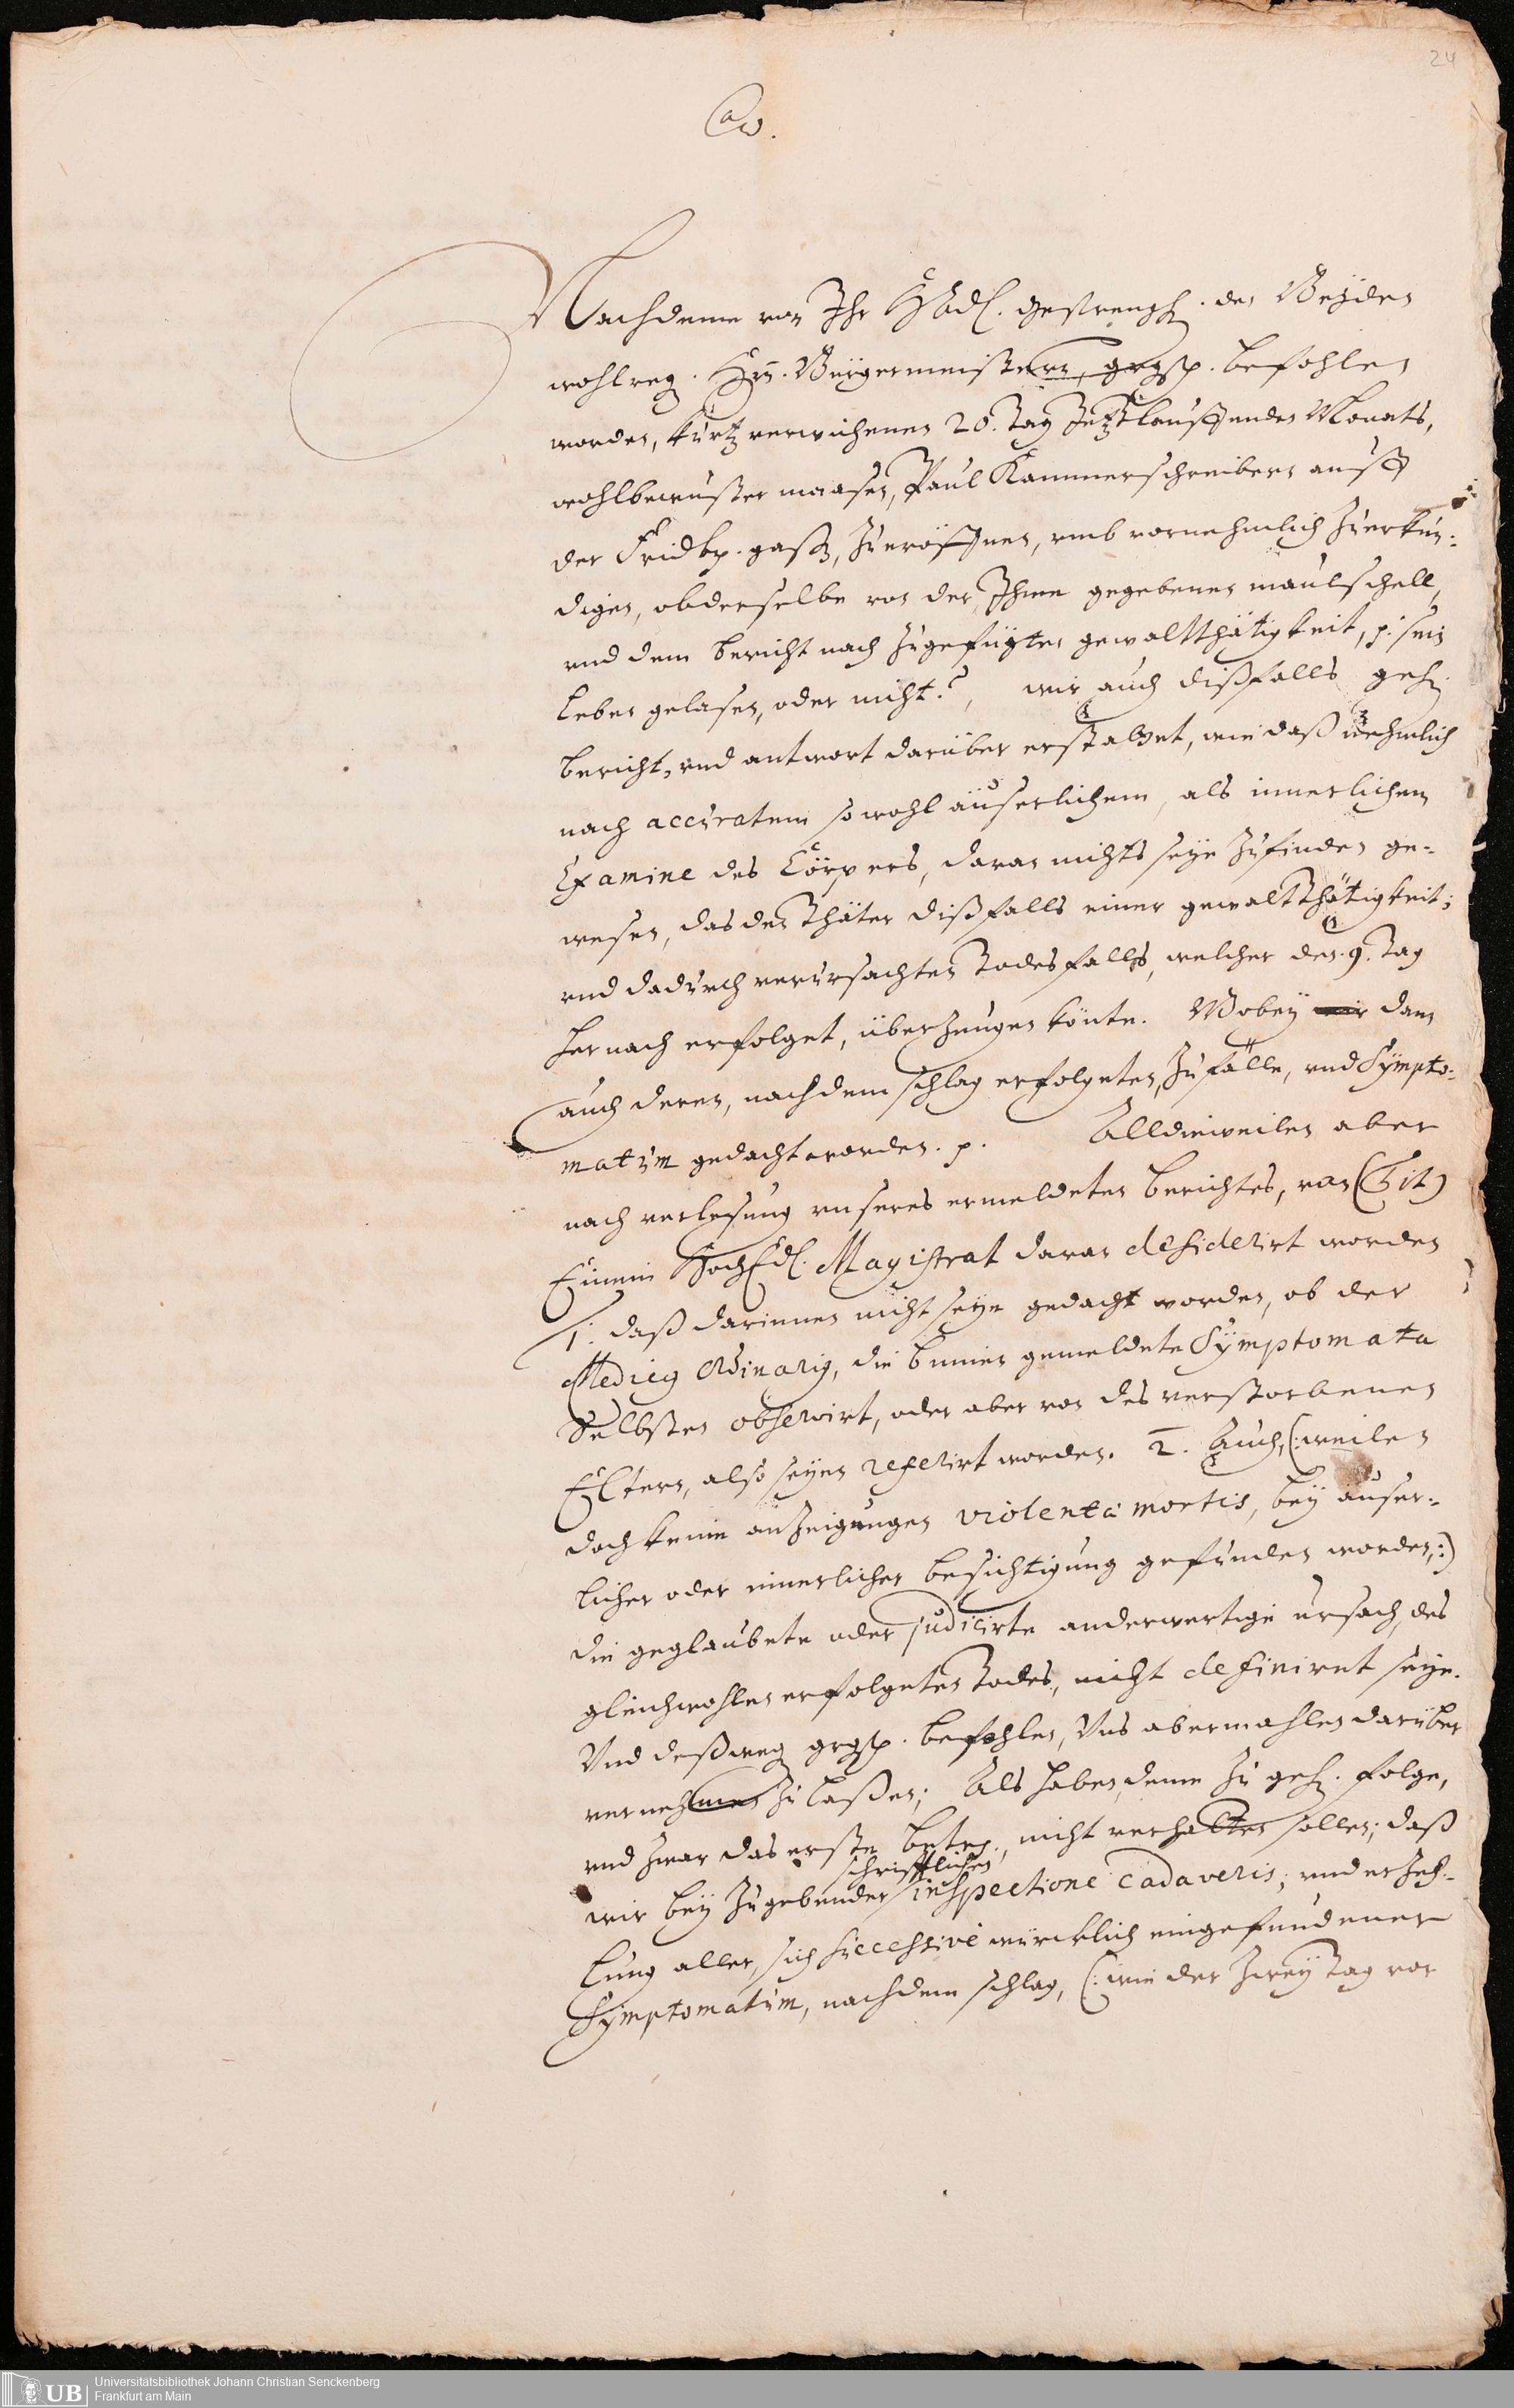 24
Nachdeme von Ihr HochEdl. Gestrengh. den Beÿden
wohlreg. Hrn. Bürgermeistern, grgst. befohlen
worden, kurtz verwichenen 28. Tag Jetztlauffenden Monats,
wohlbewuster maasen, Paul Kammerschreibern auff
der Fridbg. gaß, zueröffnen, vmb vornehmlich zuerkün-
digen, ob derselbe von der Ihme gegebenen maulschell,
vnd dem bericht nach zugefügten gewaltthätigkeit, p. sein
leben gelasen, oder nicht?, wir auch dißfalls geh.
bericht, vnd antwort darüber erstattet, wie daß nehmlich
nach accuratem sowohl äuserlichem, als innerlichem
Examine des Cörpers, daran nichts seÿe zufinden ge-
wesen, das den Thäter dißfalls einer gewaltthätigkeit;
vnd dadurch verursachten Todesfalls, welcher den 9. Tag
hernach erfolget, überzeugen könte. Wobeÿ dann
auch deren, nach dem schlag erfolgeten, Zufälle, vnd Sÿmpto-
matum gedacht worden. p. Alldieweilen aber
nach verlesung vnseres ermeldeten berichtes, von (Tit)
Einem HochEdl. Magistrat daran desiderirt worden
1. daß darinnen nicht seÿe gedacht worden, ob der
Medicg Ordinarig, die gemeldete Sÿmptomata
Selbsten observirt, oder aber von des verstorbenen
Eltern, also seÿen referirt worden. 2. Auch, (:weilen
doch keine anzeigungen violentâ mortis, beÿ äuser-
licher oder innerlicher besichtigung gefunden worden,:)
die geglaubete oder judicirte anderwertige ursach, des
gleichwohlen erfolgeten Todes, nicht definiret seÿe.
Vnd deßweg grgst. befohlen, Vns abermahlen darüber
vernehmen zu laßen; Als haben, deme zu geh. folge,
vnd zwar das erste betr., nicht verhalten sollen; daß
schrifftlichen
wir beÿ zugebender inspectione cadaveris; vnd erzeh-
lung aller, sich successivè würcklich eingefundener
Sÿmptomatum, nach dem schlag, (:wie der zweÿ Tag vor
UB Universitätsbibliothek Johann Christian Senckenberg
Frankfurt am Main